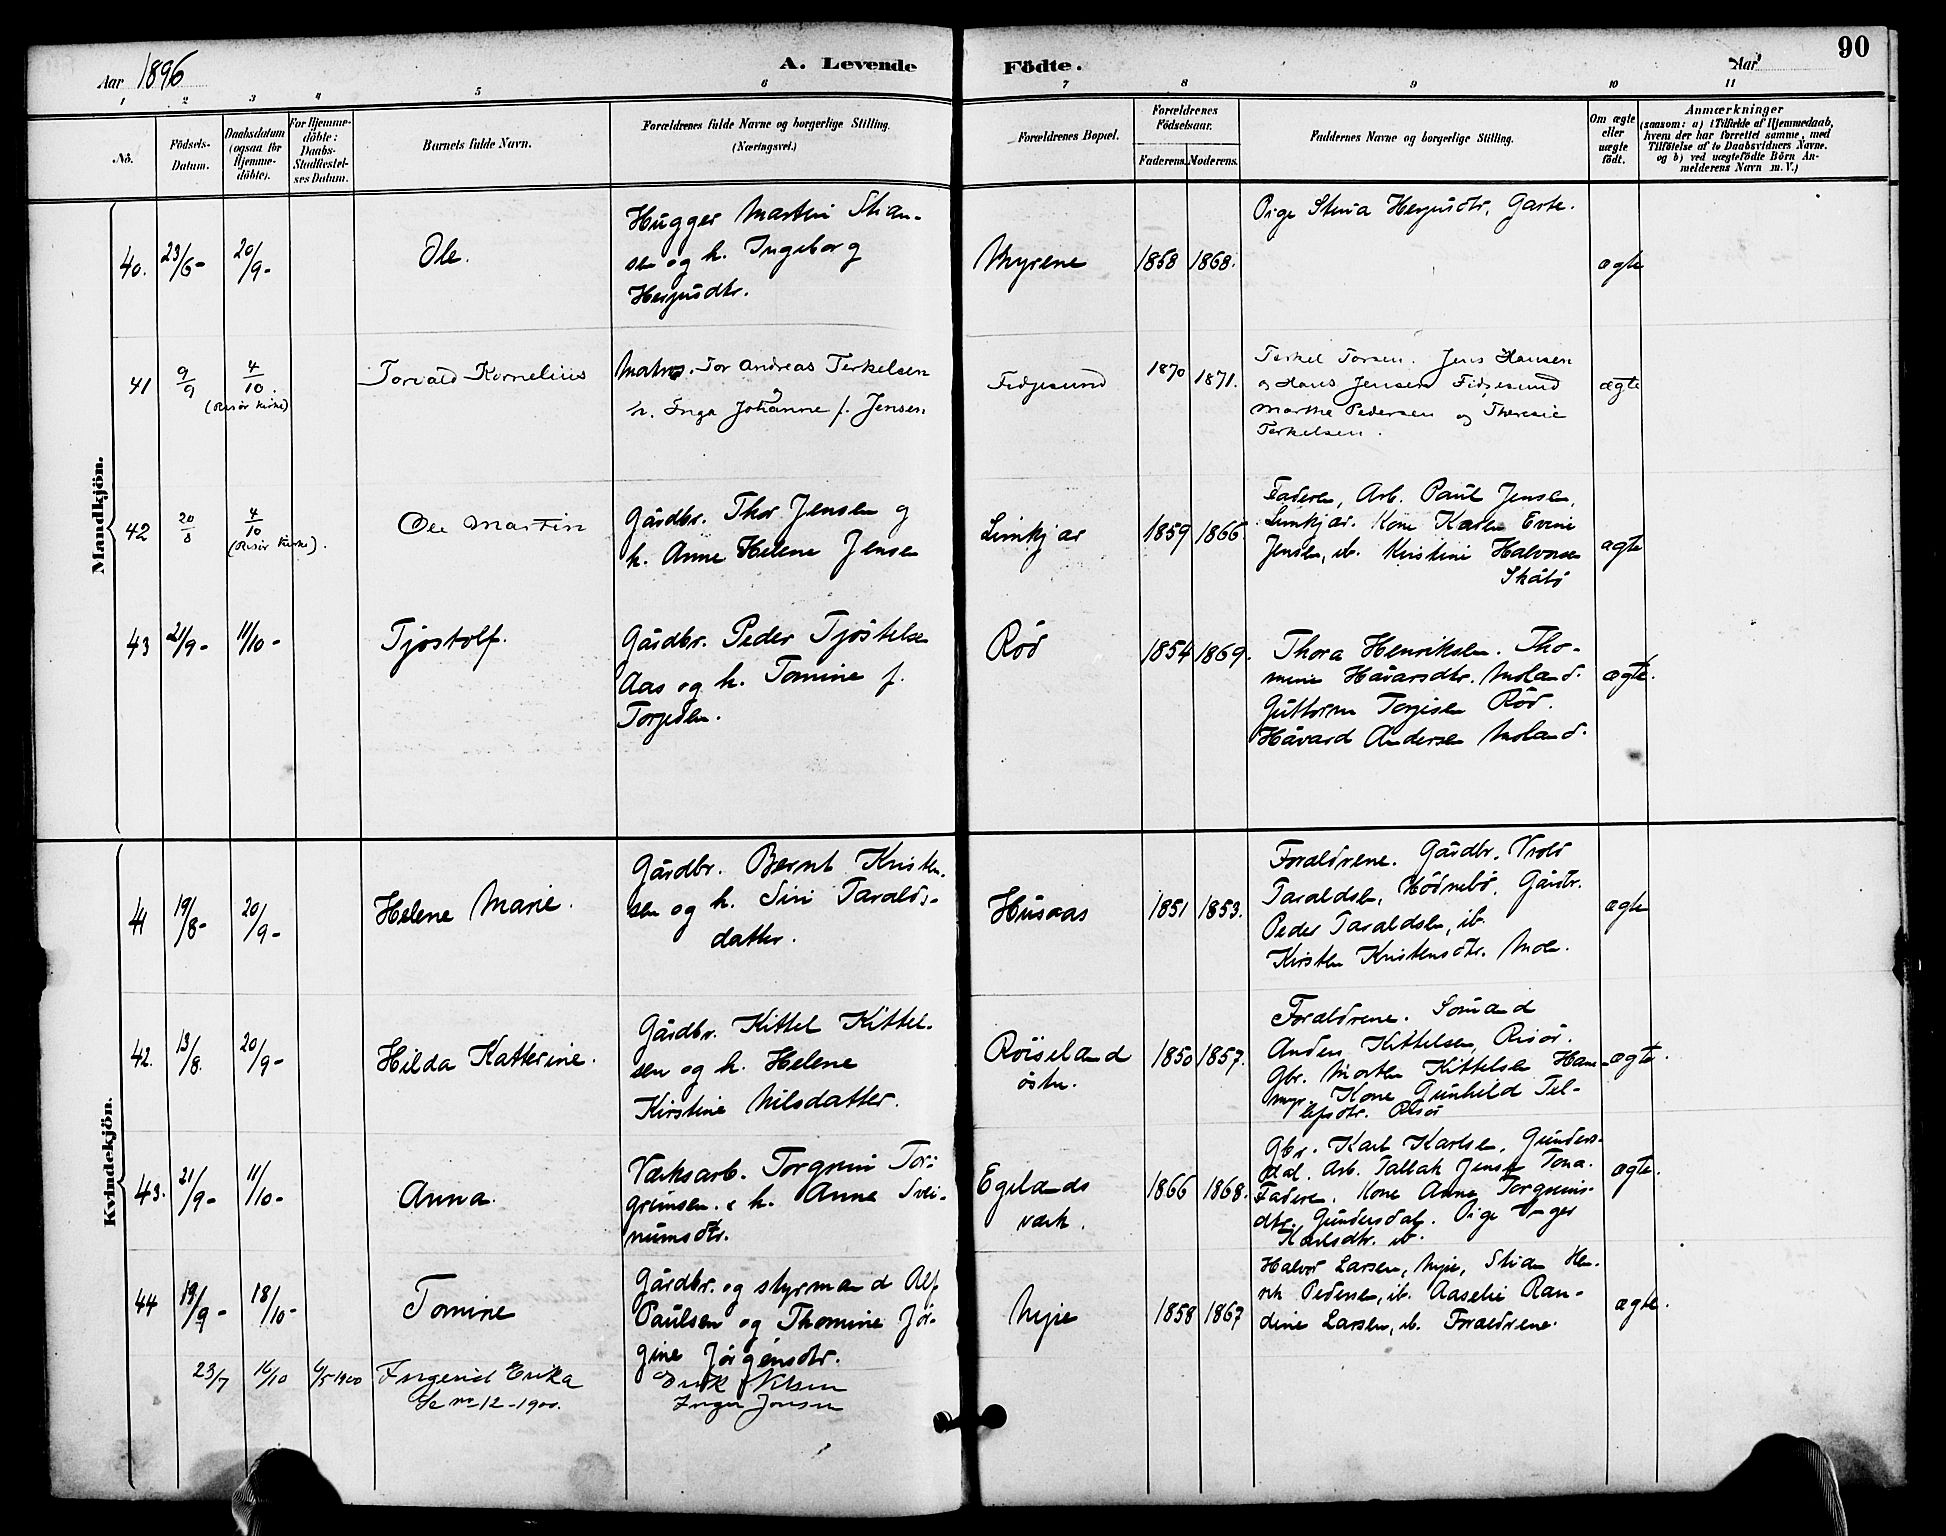 Aar 1896
A. Levende Födte.
Aar
90
1 2 3 4 5 6 7 8 9 10 11
No.
Födsels-Datum.
Daabsdatum (ogsaa for Hjemme-döbte).
For Hjemme-döbte: Daabs-Stadfæstel-ses Datum.
Barnets fulde Navn.
Forældrenes fulde Navne og borgerlige Stilling. (Næringsvei.)
Forældrenes Bopæl.
Forældrenes Födselsaar.
Faderens. Moderens.
Faddernes Navne og borgerlige Stilling.
Om ægte eller uægte födt.
Anmærkninger
(saasom: a) i Tilfælde af Hjemmedaab, hvem der har forrettet samme, med Tilföielse af to Daabsvidners Navne. og b) ved uægtefödte Börn Anmelderens Navn m. V.)
Mandkjön.
40. 23/6- 20/9- Ole.
Hugger Martin Stian-
sen og h. Ingeborg
Herjusdtr.
Myrene 1858 1868.
Pige Stina Herjusdtr, Garte.
ægte
41 9/9 4/10. (Risør kirke) Torvald Kornelius
Matros. Tor Andreas Terkelsen
og h. Inga Johanne f. Jensen
Fidjesund 1870 1871.
Terkel Torsen. Jens Hansen
og Hans Jensen Fidjesund
Marthe Pedersen og Theresie
Terkelsen.
ægte
42 20/8 4/10 (Risør Kirke). Ole Martin
Gårdbr. Thor Jensen og
h. Anne Helene Jensen
Limkjær 1859 1866
Faderen, Arb. Paul Jensen,
Limkjær. Kone Karen Evine
Jensen, ib. Kristine Halvorsen
Skåtö
ægte
43 21/9- 11/10- Tjøstolf.
Gårdbr. Peder Tjöstelsen
Aas og h. Tomine f.
Torjesen.
Röd 1854 1869.
Thora Henriksen. Tho-
mine Håvarsdtr. Moland.
Guttorm Torjisen Röd.
Håvard Andersen Moland.
ægte.
Kvindekjön.
41 19/8- 20/9- Helene Marie.
Gårdbr. Bernt Kristen-
sen og h. Siri Taralds-
datter.
Husaas 1851 1853.
Forældrene. Gårdbr. Vrold
Taraldsen, Hödnebö, Gårdbr.
Peder Taraldsen, ib.
Kirsten Kristensdtr. Moen.
ægte
42. 13/8. 20/9- Hilda Katterine.
Gårdbr. Kittel Kittel-
sen og h. Helene
Kirstine Nilsdatter.
Röiseland
östre. 1850 1857.
Forældrene. Sömand
Anders Kittelsen, Risör.
Gbr. Morten Kittelsen Ham-
myr. Kone Gunhild Tel-
lefsdtr. Risör
ægte.
43. 21/9- 11/10- Anna.
Værksarb. Torgrim Tor-
grimsen. & h. Anne Svei-
numsdtr.
Egelands
værk. 1866 1868.
Gbr. Karl Karlsen, Gunders-
dal. Arb. Tallak Jensen
Faderen. Kone Anne Torgrims-
dtr. Gundersdal. Pige
Karlsdtr. ib.
ægte.
44 19/9- 18/10- Tomine
Gårdbr. og styrmand Alf
Paulsen og Thomine Jör-
gine Jörgensdtr.
Myje 1858 1867
Halvor Larsen, Myje, Stian Hen-
rik Pedersen, ib. Aaselie Ran-
dine Larsen, ib. Forældrene.
ægte.
23/7 16/10 6/5 1900 Ingerid Erika
Se no 12 - 1900.
Erik Nilsen
Inger Jonsen